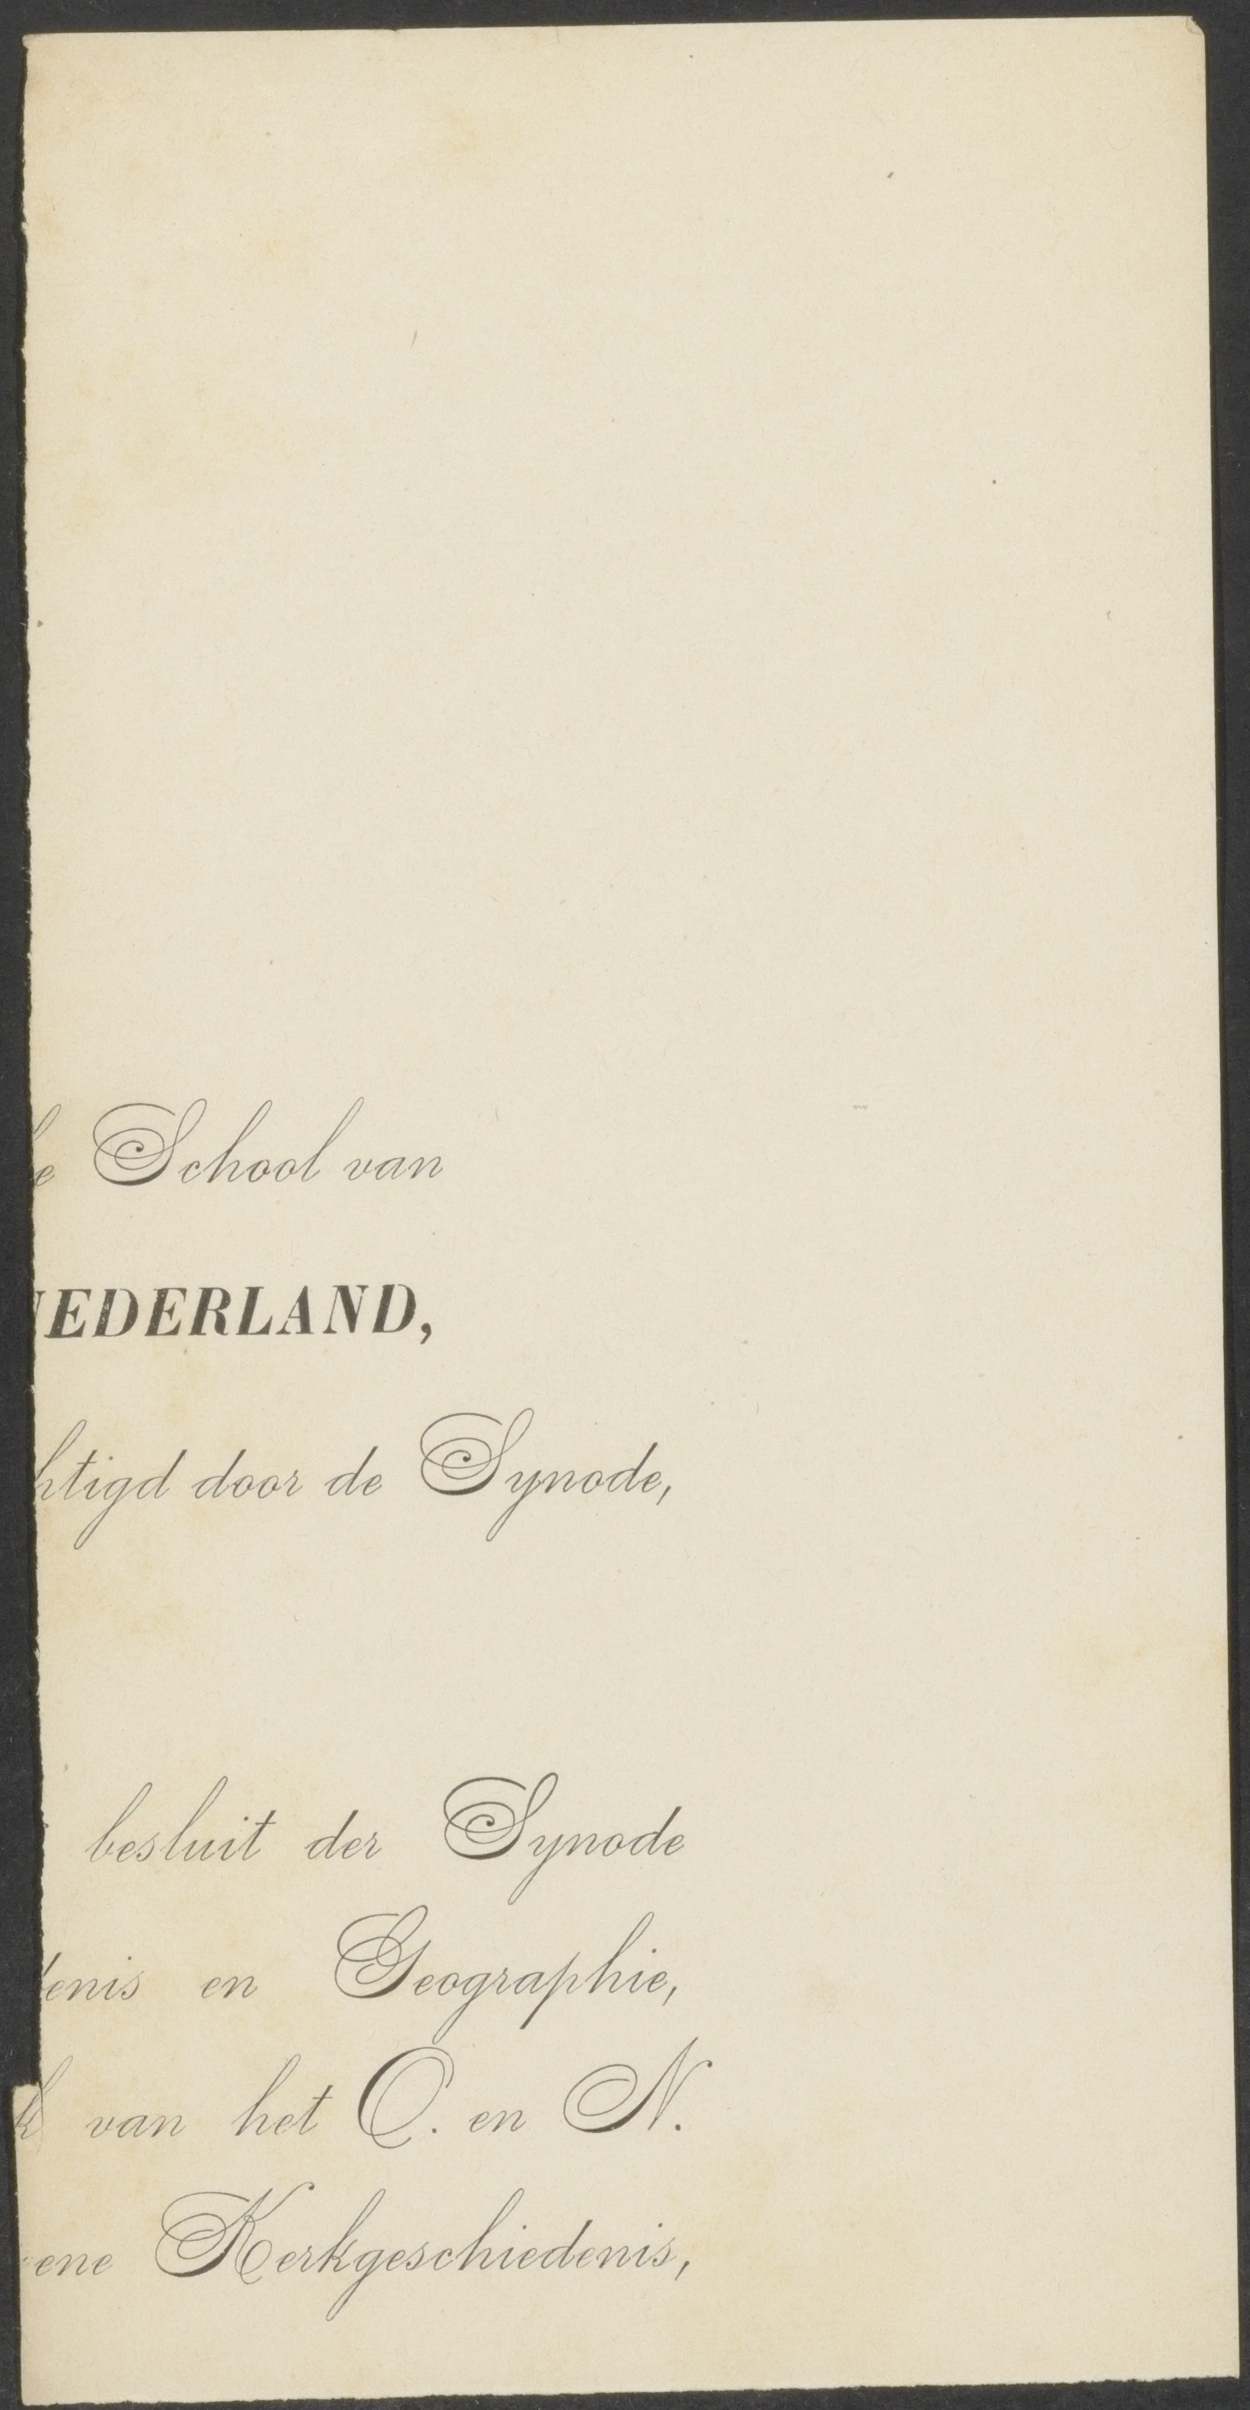 he School van
NEDERLAND,
htigd door de Synode,
besluit der Synode
denis en Geographie,
k van het O. en N.
ene Kerkgeschiedenis,